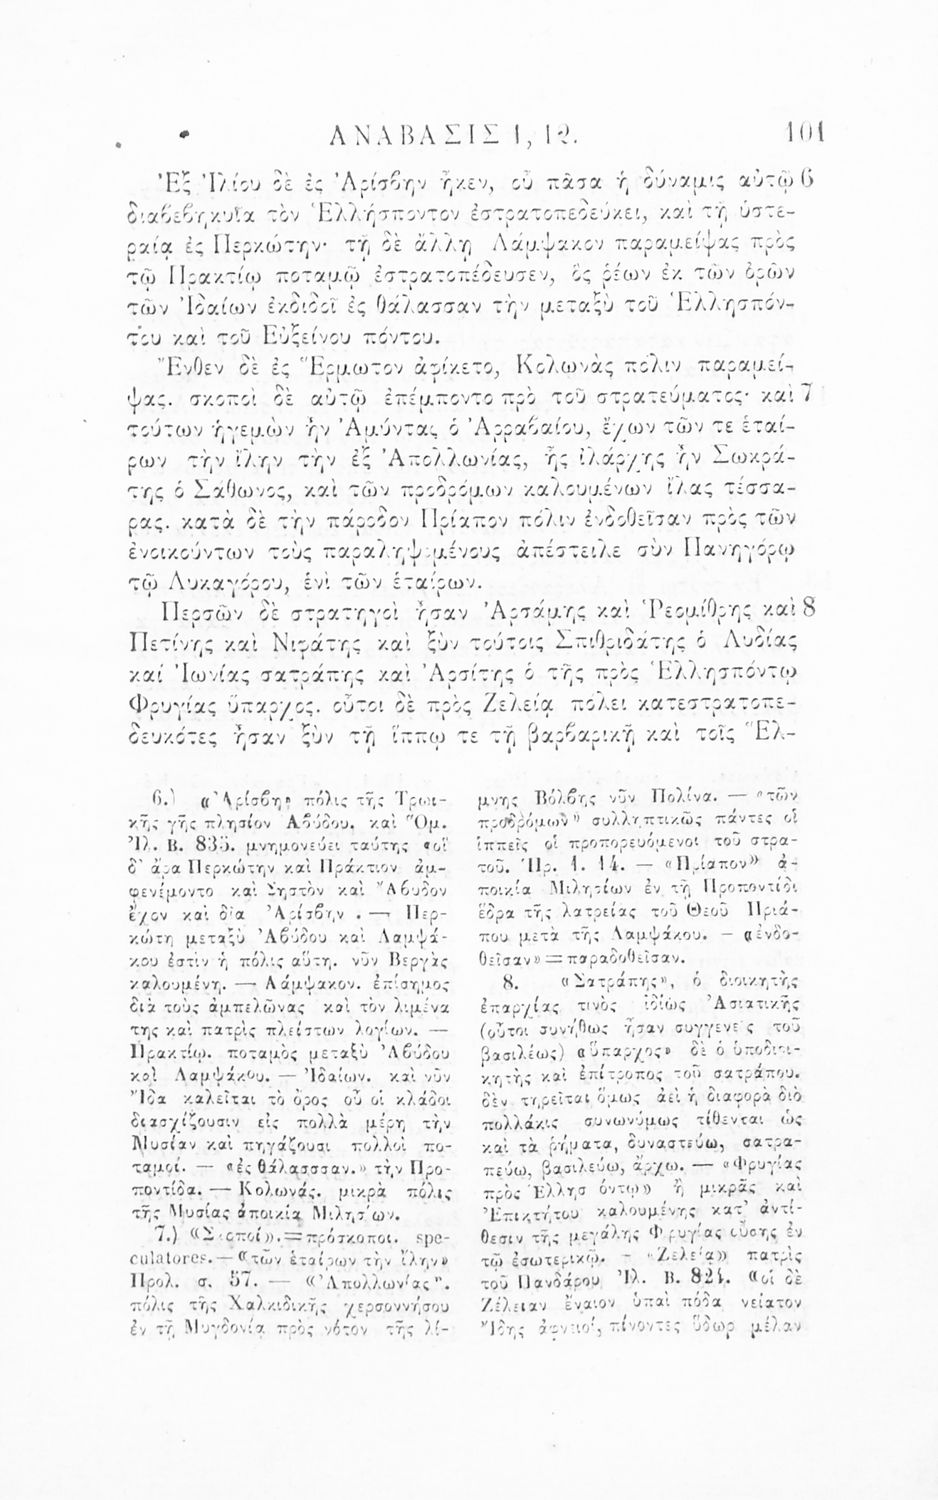 ΑΝΑΒΑΣΙΣ 1, 12. 101
Ἐξ Ἰλίου δὲ ἐς Ἀρίσβην ἧκεν, οὗ πᾶσα ἡ δύναμις αὐτῷ 6
διαβεβηκυῖα τὸν Ἑλλήσποντον ἐστρατοπεδεύκει, καὶ τῇ ὑστε-
ραίᾳ ἐς Περκώτην· τῇ δὲ ἄλλῃ Λάμψακον παραμείψας πρὸς
τῷ Πρακτίῳ ποταμῷ ἐστρατοπέδευσεν, ὃς ῥέων ἐκ τῶν ὀρῶν
τῶν Ἰδαίων ἐκδιδοῖ ἐς θάλασσαν τὴν μεταξὺ τοῦ Ἑλλησπόν-
του καὶ τοῦ Εὐξείνου πόντου.
Ἔνθεν δὲ ἐς Ἕρμωτον ἀφίκετο, Κολωνὰς πόλιν παραμεί-
ψας. σκοποὶ δὲ αὐτῷ ἐπέμποντο πρὸ τοῦ στρατεύματος· καὶ 7
τούτων ἡγεμὼν ἦν Ἀμύντας ὁ Ἀρραβαίου, ἔχων τῶν τε ἑταί-
ρων τὴν ἴλην τὴν ἐξ Ἀπολλωνίας, ἧς ἰλάρχης ἦν Σωκρά-
της ὁ Σάθωνος, καὶ τῶν προδρόμων καλουμένων ἴλας τέσσα-
ρας. κατὰ δὲ τὴν πάροδον Πρίαπον πόλιν ἐνδοθεῖσαν πρὸς τῶν
ἐνοικούντων τοὺς παραληψομένους ἀπέστειλε σὺν Πανηγόρῳ
τῷ Λυκαγόρου, ἑνὶ τῶν ἑταίρων.
Περσῶν δὲ στρατηγοὶ ἦσαν Ἀρσάμης καὶ Ῥεομίθρης καὶ 8
Πετίνης καὶ Νιφάτης καὶ ξὺν τούτοις Σπιθριδάτης ὁ Λυδίας
καί Ἰωνίας σατράπης καὶ Ἀρσίτης ὁ τῆς πρὸς Ἑλλησπόντῳ
Φρυγίας ὕπαρχος. οὗτοι δὲ πρὸς Ζελείᾳ πόλει κατεστρατοπε-
δευκότες ἦσαν ξὺν τῇ ἵππῳ τε τῇ βαρβαρικῇ καὶ τοῖς Ἕλ-
6.) «Ἀρίσβη» πόλις τῆς Τρωι-
κῆς γῆς πλησίον Ἀβύδου. καὶ Ὅμ.
Ἰλ. Β. 835. μνημονεύει ταύτης «οἳ
δ' ἄρα Περκώτην καὶ Πράκτιον ἀμ-
φενέμοντο καὶ Σηστὸν καὶ Ἄβυδον
ἔχον καὶ δῖα Ἀρίσβην . — Περ-
κώτη μεταξὺ Ἀβύδου καὶ Λαμψά-
κου ἐστὶν ἡ πόλις αὕτη. νῦν Βεργὰς
καλουμένη. — Λάμψακον. ἐπίσημος
διὰ τοὺς ἀμπελῶνας καὶ τὸν λιμένα
της καὶ πατρὶς πλείστων λογίων. —
Πρακτίῳ. ποταμὸς μεταξὺ Ἀβύδου
καὶ Λαμψάκου. — Ἰδαίων. καὶ νῦν
Ἴδα καλεῖται τὸ ὄρος οὗ οἱ κλάδοι
διασχίζουσιν εἰς πολλὰ μέρη τὴν
Μυσίαν καὶ πηγάζουσι πολλοὶ πο-
ταμοί. — «ἐς θάλασσσαν.» τὴν Προ-
ποντίδα. — Κολωνάς. μικρὰ πόλις
τῆς Μυσίας ἀποικία Μιλησίων.
7.) «Σκοποί».=πρόσκοποι. spe-
culatores.—«τῶν ἑταίρων τὴν ἴλην»
Προλ. σ. 57. — «Ἀπολλωνίας".
πόλις τῆς Χαλκιδικῆς χερσοννήσου
ἐν τῇ Μυγδονίᾳ πρὸς νότον τῆς λί-
μνης Βόλβης νῦν Πολίνα. — "τῶν
προδρόμων" συλληπτικῶς πάντες οἱ
ἱππεῖς οἱ προπορευόμενοι τοῦ στρα-
τοῦ. Ἡρ. 1. 14. — «Πρίαπον» ἀ-
ποικία Μιλησίων ἐν τῇ Προποντίδι
ἕδρα τῆς λατρείας τοῦ Θεοῦ Πριά-
που μετὰ τῆς Λαμψάκου. — «ἐνδο-
θεῖσαν»=παραδοθεῖσαν.
8. «Σατράπης», ὁ διοικητὴς
ἐπαρχίας τινὸς ἰδίως Ἀσιατικῆς
(οὗτοι συνήθως ἦσαν συγγενεῖς τοῦ
βασιλέως) «ὕπαρχος» δὲ ὁ ὑποδιοι-
κητὴς καὶ ἐπίτροπος τοῦ σατράπου.
δὲν τηρεῖται ὅμως ἀεὶ ἡ διαφορὰ διὸ
πολλάκις συνωνύμως τίθενται ὡς
καὶ τὰ ῥήματα, δυναστεύω, σατρα-
πεύω, βασιλεύω, ἄρχω. — «Φρυγίας
πρὸς Ἑλλησ όντῳ» ἢ μικρᾶς καὶ
Ἐπικτήτου καλουμένης κατ' ἀντί-
θεσιν τῆς μεγάλης Φρυγίας οὔσης ἐν
τῷ ἐσωτερικῷ. — «Ζελεία» πατρὶς
τοῦ Πανδάρου Ἰλ. Β. 824. «οἳ δὲ
Ζέλειαν ἔναιον ὑπαὶ πόδα νείατον
Ἴδης ἀφνειοί, πίνοντες ὕδωρ μέλαν